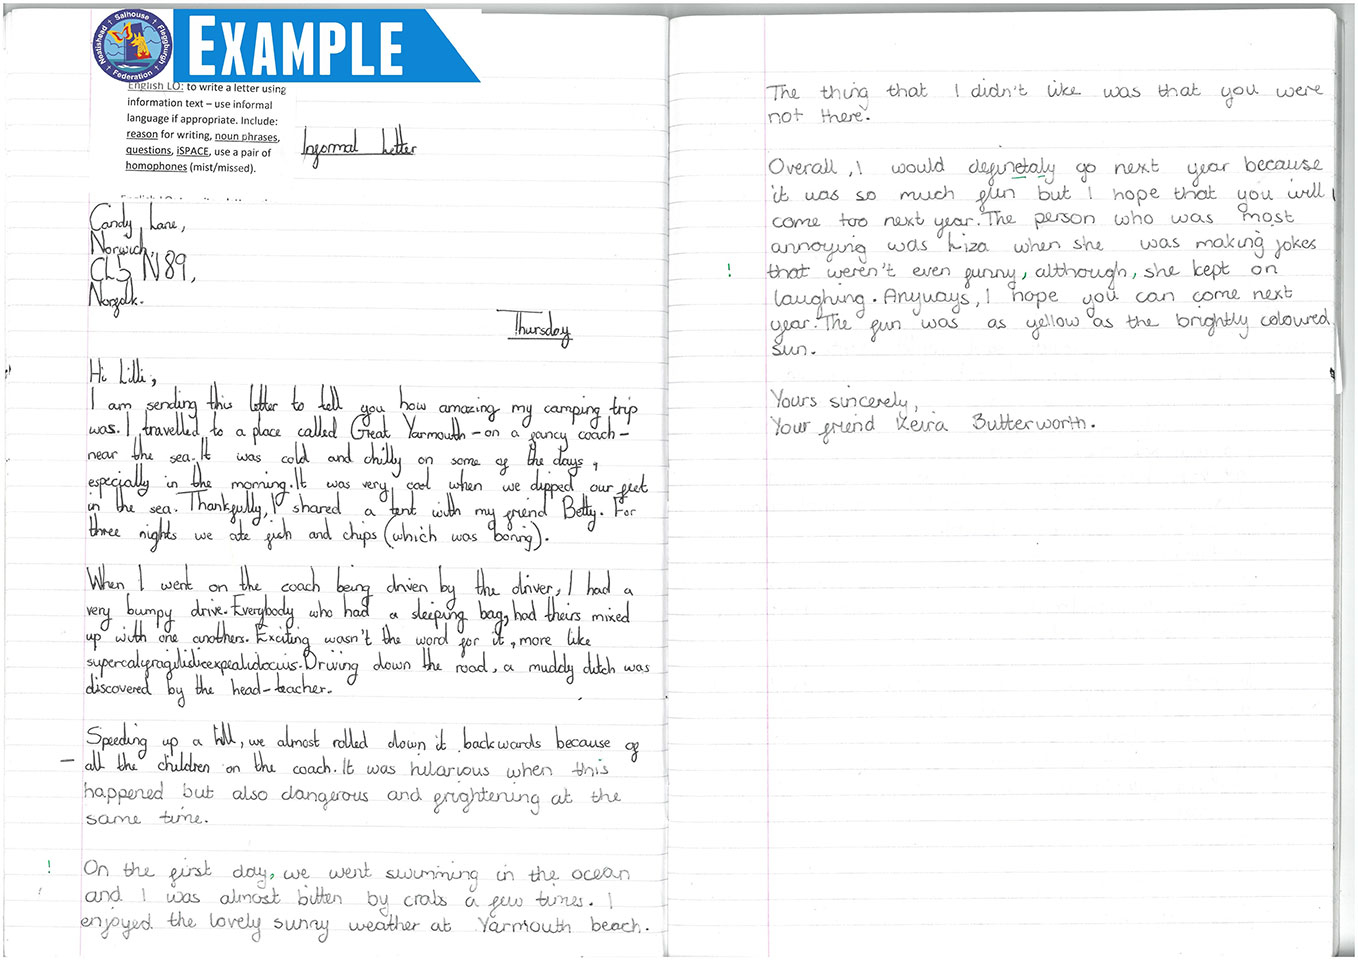 Neatishead Salhouse Fleggburgh
Federation
EXAMPLE
English LO: to write a letter using
information text – use informal
language if appropriate. Include:
reason for writing, noun phrases,
questions, iSPACE, use a pair of
homophones (mist/missed).
Informal Letter
Candy Lane,
Norwich,
CL5 N89,
Norfolk.
Thursday
Hi Lilli,
I am sending this letter to tell you how amazing my camping trip
was. I travelled to a place called Great Yarmouth – on a fancy coach –
near the sea. It was cold and chilly on some of the days,
especially in the morning. It was very cool when we dipped our feet
in the sea. Thankfully, I shared a tent with my friend Betty. For
three nights we ate fish and chips (which was boring).
When I went on the coach being driven by the driver, I had a
very bumpy drive. Everybody who had a sleeping bag, had theirs mixed
up with one anothers. Exciting wasn't the word for it, more like
Driving down the road, a muddy ditch was
discovered by the head-teacher.
Speeding up a hill, we almost rolled down it backwards because of
all the children on the coach. It was hilarious when this
happened but also dangerous and frightening at the
same time.
! On the first day, we went swimming in the ocean
and I was almost bitten by crabs a few times. I
enjoyed the lovely sunny weather at Yarmouth beach.
The thing that I didn't like was that you were
not there.
Overall, I would definetaly go next year because
it was so much fun but I hope that you will
come too next year. The person who was most
annoying was Liza when she was making jokes
! that weren't even funny, although, she kept on
laughing. Anyways, I hope you can come next
year. The fun was as yellow as the brightly coloured
sun.
Yours sincerely,
Your friend Keira Butterworth.